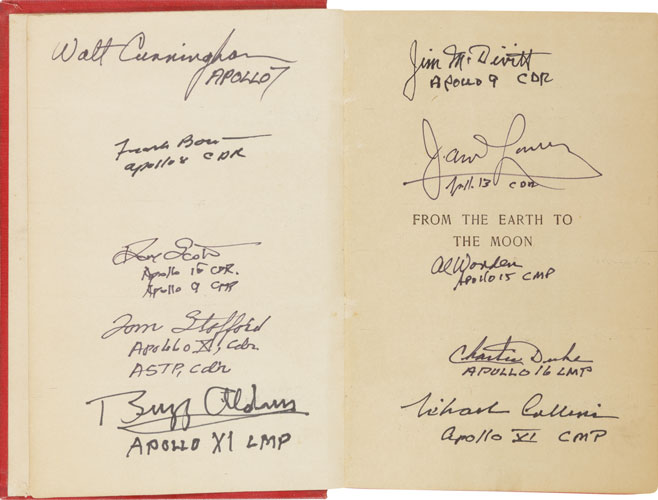 Walt Cunningham
APOLLO 7
Frank Borman
Apollo 8 CDR
Dave Scott
Apollo 15 CDR.
Apollo 9 CMP
Tom Stafford
APOLLO X, Cdr
ASTP, Cdr
Buzz Aldrin
APOLLO XI LMP
Jim McDivitt
APOLLO 9 CDR
James Lovell
Apollo 13 CDR
FROM THE EARTH TO
THE MOON
Al Worden
APOLLO 15 CMP
Charlie Duke
APOLLO 16 LMP
Michael Collins
Apollo XI CMP